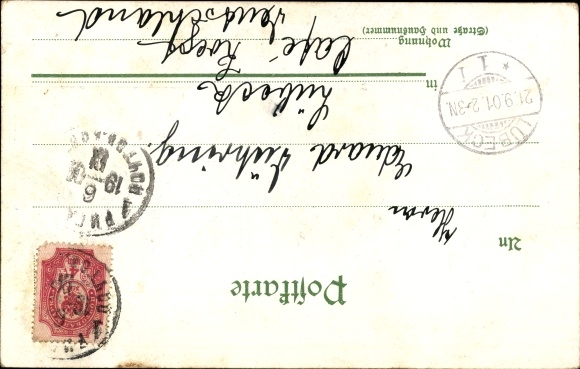 Postkarte
An
Herrn
Eduard Lühring.
Lübeck
in
Café Koept
Wohnung
(Straße und Hausnummer)
Deutschland
LÜBECK
21.9.01.2-3N.
* 1 1
РИГА
19
6